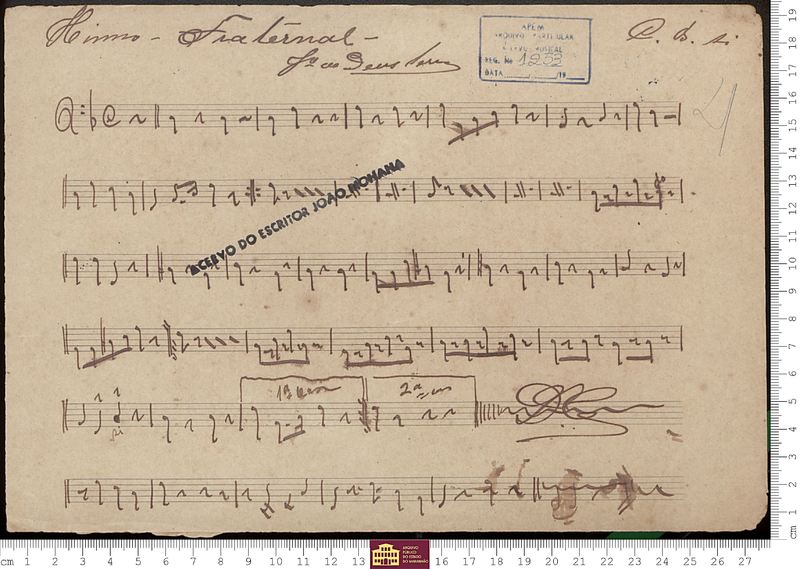 Hinno - Fraternal -
C. B. si
APEM
ARQUIVO PARTICULAR
ACERVO MUSICAL
REG. No 1253
DATA / /19
ACERVO DO ESCRITOR JOÃO MOHANA
1ª
2ª
si
ARQUIVO
PÚBLICO
DO ESTADO
DO MARANHÃO
cm 1 2 3 4 5 6 7 8 9 10 11 12 13 16 17 18 19 20 21 22 23 24 25 26 27
cm 1 2 3 4 5 6 7 8 9 10 11 12 13 14 15 16 17 18 19